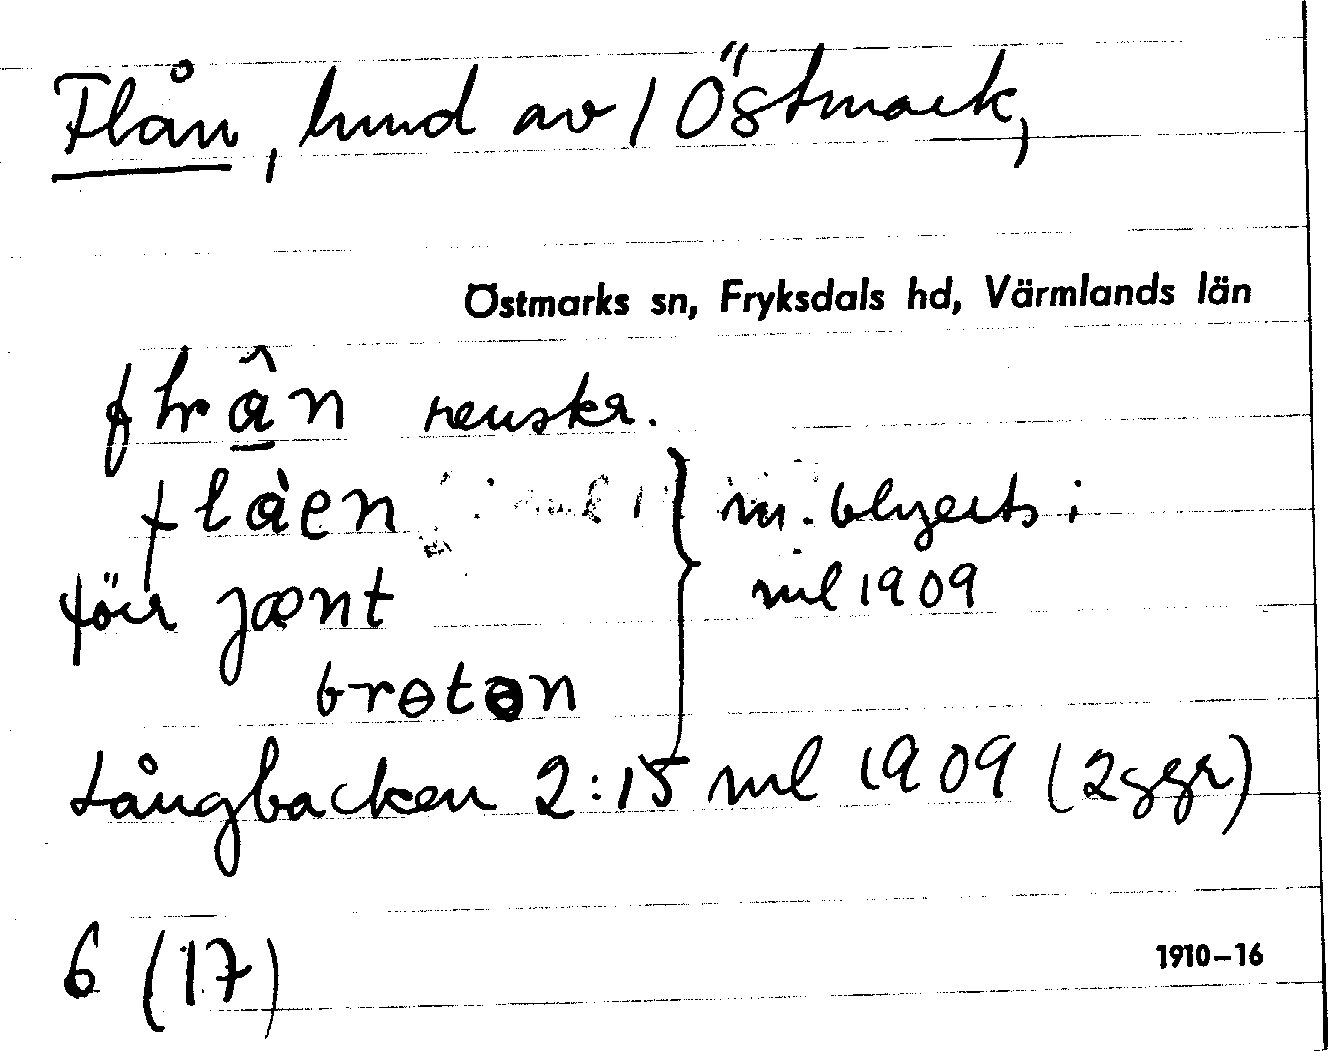 Flån, hmd av / Östmark,
Östmarks sn, Fryksdals hd, Värmlands län
renskr.
flàen } m. blyerts i
för jænt ml 1909
brɵtɵn
Långbacken 2:15 ml 1909 (2ggr)
6 (17)
1910–16